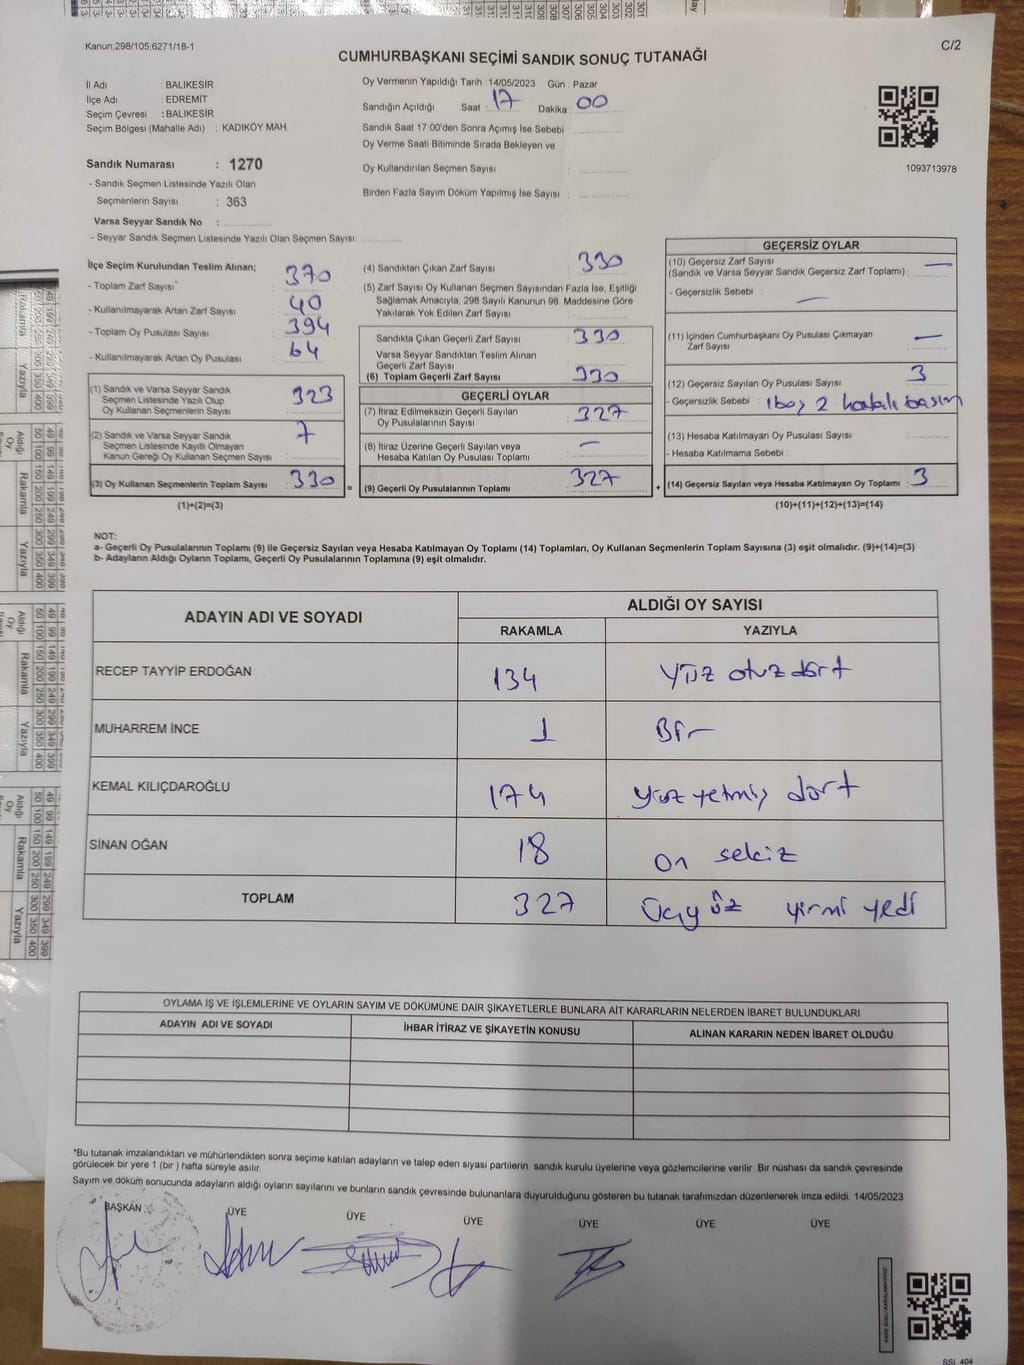 Kanun;298/105;6271/18-1
C/2
CUMHURBAŞKANI SEÇİMİ SANDIK SONUÇ TUTANAĞI
İl Adı : BALIKESİR
İlçe Adı : EDREMİT
Seçim Çevresi : BALIKESİR
Seçim Bölgesi (Mahalle Adı) : KADIKÖY MAH.
Oy Vermenin Yapıldığı Tarih :14/05/2023 Gün : Pazar
Sandığın Açıldığı Saat : 17 Dakika : 00
Sandık Saat 17:00'den Sonra Açımış İse Sebebi :
Oy Verme Saati Bitiminde Sırada Bekleyen ve
Oy Kullandırılan Seçmen Sayısı :
Birden Fazla Sayım Döküm Yapılmış İse Sayısı :
1093713978
Sandık Numarası : 1270
- Sandık Seçmen Listesinde Yazılı Olan
Seçmenlerin Sayısı : 363
Varsa Seyyar Sandık No :
- Seyyar Sandık Seçmen Listesinde Yazılı Olan Seçmen Sayısı :
İlçe Seçim Kurulundan Teslim Alınan;
- Toplam Zarf Sayısı : 370
- Kullanılmayarak Artan Zarf Sayısı : 40
- Toplam Oy Pusulası Sayısı : 394
- Kullanılmayarak Artan Oy Pusulası : 64
(1) Sandık ve Varsa Seyyar Sandık
Seçmen Listesinde Yazılı Olup
Oy Kullanan Seçmenlerin Sayısı : 323
(2) Sandık ve Varsa Seyyar Sandık
Seçmen Listesinde Kayıtlı Olmayan
Kanun Gereği Oy Kullanan Seçmen Sayısı : 7
(3) Oy Kullanan Seçmenlerin Toplam Sayısı : 330
(1)+(2)=(3)
(4) Sandıktan Çıkan Zarf Sayısı : 330
(5) Zarf Sayısı Oy Kullanan Seçmen Sayısından Fazla İse, Eşitliği
Sağlamak Amacıyla, 298 Sayılı Kanunun 98. Maddesine Göre
Yakılarak Yok Edilen Zarf Sayısı :
Sandıkta Çıkan Geçerli Zarf Sayısı : 330
Varsa Seyyar Sandıktan Teslim Alınan
Geçerli Zarf Sayısı :
(6) Toplam Geçerli Zarf Sayısı : 330
GEÇERLİ OYLAR
(7) İtiraz Edilmeksizin Geçerli Sayılan
Oy Pusulalarının Sayısı : 327
(8) İtiraz Üzerine Geçerli Sayılan veya
Hesaba Katılan Oy Pusulası Toplamı : —
= (9) Geçerli Oy Pusulalarının Toplamı : 327
GEÇERSİZ OYLAR
(10) Geçersiz Zarf Sayısı
(Sandık ve Varsa Seyyar Sandık Geçersiz Zarf Toplamı) : —
- Geçersizlik Sebebi : —
(11) İçinden Cumhurbaşkanı Oy Pusulası Çıkmayan
Zarf Sayısı : —
(12) Geçersiz Sayılan Oy Pusulası Sayısı : 3
- Geçersizlik Sebebi : 1 boş 2 hatalı basım
(13) Hesaba Katılmayan Oy Pusulası Sayısı :
- Hesaba Katılmama Sebebi :
+ (14) Geçersiz Sayılan veya Hesaba Katılmayan Oy Toplamı : 3
(10)+(11)+(12)+(13)=(14)
NOT:
a- Geçerli Oy Pusulalarının Toplamı (9) ile Geçersiz Sayılan veya Hesaba Katılmayan Oy Toplamı (14) Toplamları, Oy Kullanan Seçmenlerin Toplam Sayısına (3) eşit olmalıdır. (9)+(14)=(3)
b- Adayların Aldığı Oyların Toplamı, Geçerli Oy Pusulalarının Toplamına (9) eşit olmalıdır.
ADAYIN ADI VE SOYADI
ALDIĞI OY SAYISI
RAKAMLA YAZIYLA
RECEP TAYYİP ERDOĞAN 134 Yüz otuz dört
MUHARREM İNCE 1 Bir
KEMAL KILIÇDAROĞLU 174 Yüz yetmiş dört
SİNAN OĞAN 18 On sekiz
TOPLAM 327 Üçyüz yirmi yedi
OYLAMA İŞ VE İŞLEMLERİNE VE OYLARIN SAYIM VE DÖKÜMÜNE DAİR ŞİKAYETLERLE BUNLARA AİT KARARLARIN NELERDEN İBARET BULUNDUKLARI
ADAYIN ADI VE SOYADI İHBAR İTİRAZ VE ŞİKAYETİN KONUSU ALINAN KARARIN NEDEN İBARET OLDUĞU
*Bu tutanak imzalandıktan ve mühürlendikten sonra seçime katılan adayların ve talep eden siyasi partilerin sandık kurulu üyelerine veya gözlemcilerine verilir. Bir nüshası da sandık çevresinde
görülecek bir yere 1 (bir ) hafta süreyle asılır.
Sayım ve döküm sonucunda adayların aldığı oyların sayılarını ve bunların sandık çevresinde bulunanlara duyurulduğunu gösteren bu tutanak tarafımızdan düzenlenerek imza edildi. 14/05/2023
BAŞKAN ÜYE ÜYE ÜYE ÜYE ÜYE ÜYE
KARE KODU KARALAMAYINIZ!
SSI_404